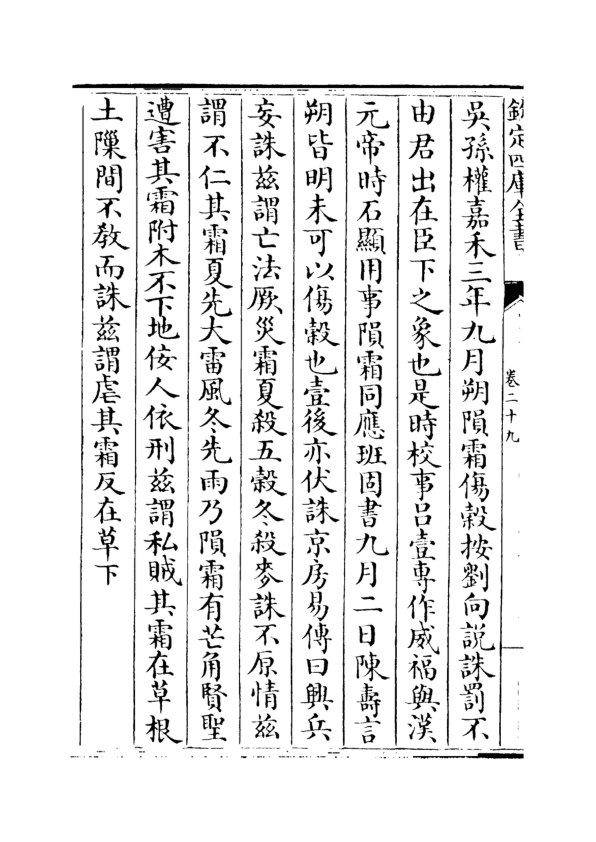 欽定四庫全書
卷二十九
吳孫權嘉禾三年九月朔隕霜傷穀按劉向説誅罰不
由君出在臣下之象也是時校事吕壹專作威福與漢
元帝時石顯用事隕霜同應班固書九月二日陳壽言
朔皆明未可以傷穀也壹後亦伏誅京房易傳曰興兵
妄誅兹謂亡法厥災霜夏殺五穀冬殺麥誅不原情兹
謂不仁其霜夏先大雷風冬先雨乃隕霜有芒角賢聖
遭害其霜附木不下地佞人依刑兹謂私賊其霜在草根
土隟間不教而誅兹謂虐其霜反在草下